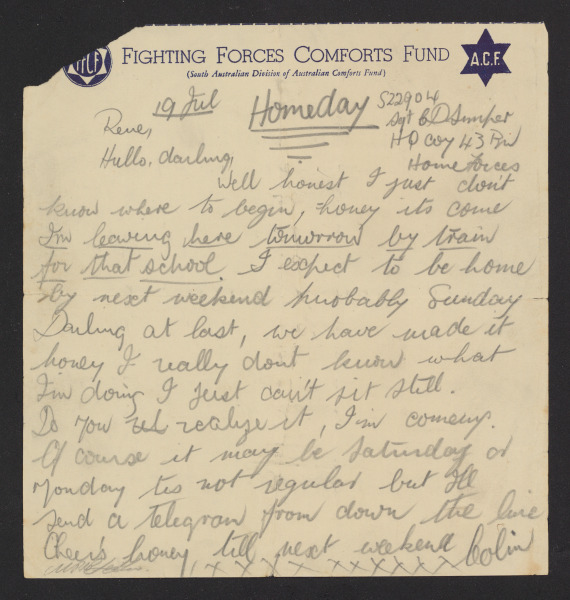 FFCF
FIGHTING FORCES COMFORTS FUND
A.C.F.
(South Australian Division of Australian Comforts Fund)
19 Jul
Homeday
S22904
Sgt C D Simper
HQ coy 43 Bn
Home Forces
Rene,
Hullo, darling,
Well honest I just don't
know where to begin, honey its come
I'm leaving here tomorrow by train
for that school. I expect to be home
by next weekend probably Sunday
Darling at last, we have made it
honey I really dont know what
I'm doing I just can't sit still.
Do you realize it, I'm coming.
Of course it may be Saturday or
Monday tis not regular but I'll
send a telegram from down the line
Cheers honey, till next weekend Colin
x x x x x x x x x x x